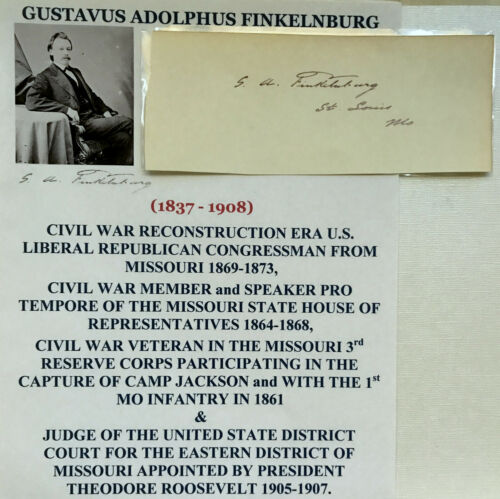 GUSTAVUS ADOLPHUS FINKELNBURG
G. A. Finkelnburg
St Louis
Mo
G. A. Finkelnburg
(1837 - 1908)
CIVIL WAR RECONSTRUCTION ERA U.S.
LIBERAL REPUBLICAN CONGRESSMAN FROM
MISSOURI 1869-1873,
CIVIL WAR MEMBER and SPEAKER PRO
TEMPORE OF THE MISSOURI STATE HOUSE OF
REPRESENTATIVES 1864-1868,
CIVIL WAR VETERAN IN THE MISSOURI 3rd
RESERVE CORPS PARTICIPATING IN THE
CAPTURE OF CAMP JACKSON and WITH THE 1st
MO INFANTRY IN 1861
&
JUDGE OF THE UNITED STATE DISTRICT
COURT FOR THE EASTERN DISTRICT OF
MISSOURI APPOINTED BY PRESIDENT
THEODORE ROOSEVELT 1905-1907.